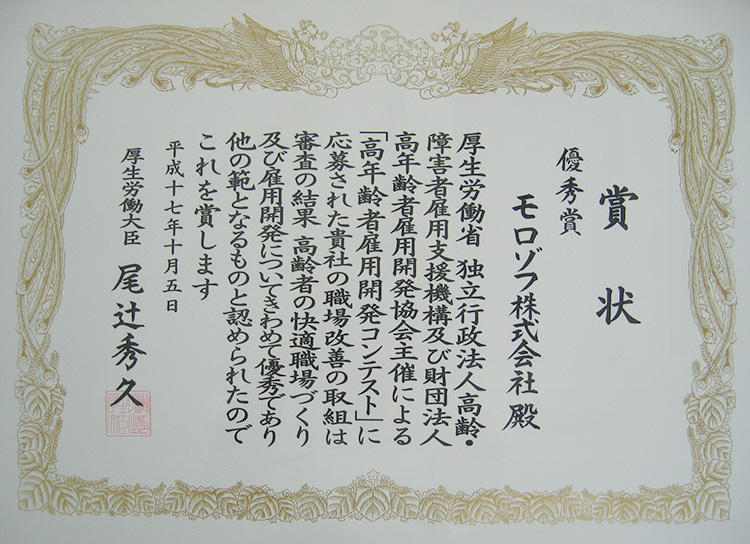 賞状
優秀賞
モロゾフ株式会社殿
厚生労働省 独立行政法人高齢・
障害者雇用支援機構及び財団法人
高年齢者雇用開発協会主催による
「高年齢者雇用開発コンテスト」に
応募された貴社の職場改善の取組は
審査の結果 高齢者の快適職場づくり
及び雇用開発についてきわめて優秀であり
他の範となるものと認められたので
これを賞します
平成十七年十月五日
厚生労働大臣 尾辻秀久